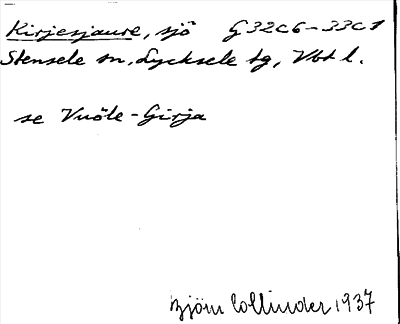 Kirjesjaure, sjö G 32c6-33c1
Stensele sn, Lycksele tg, Vbt l.
se Vuöle-Girja
Björn Collinder 1937